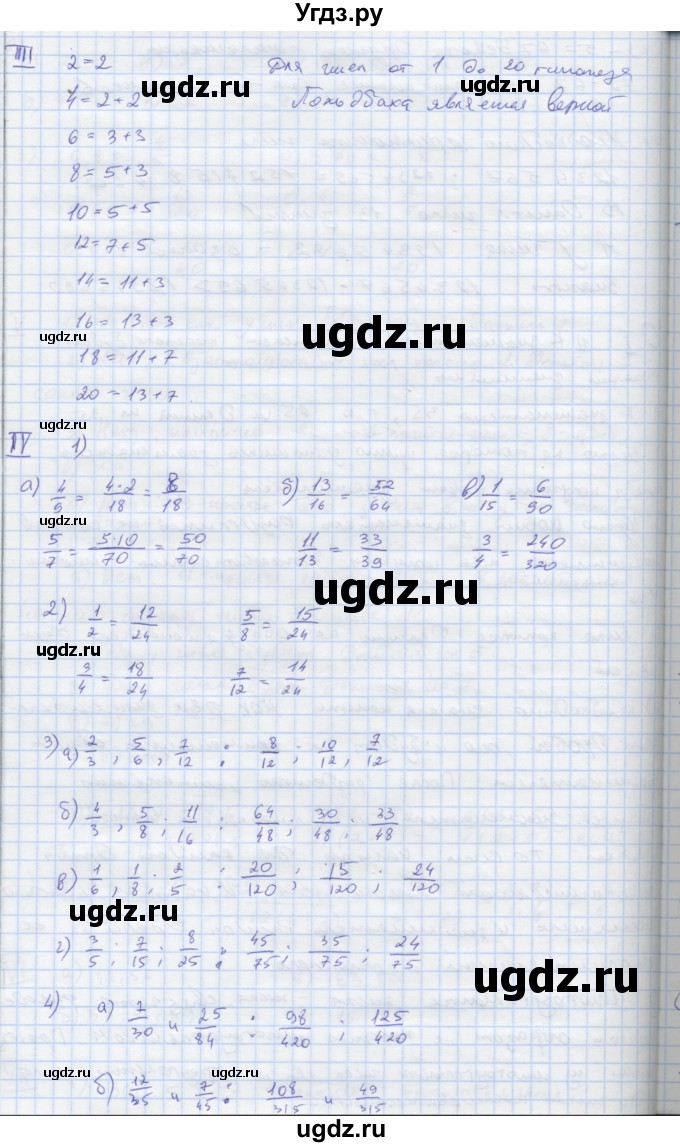 Угдз.ру
III 2 = 2 Для чисел от 1 до 20 гипотеза
4 = 2 + 2 Гольдбаха является верной
ugdz.ru ugdz.ru
6 = 3 + 3
8 = 5 + 3
10 = 5 + 5
12 = 7 + 5
14 = 11 + 3
16 = 13 + 3
ugdz.ru ugdz.ru
18 = 11 + 7
20 = 13 + 7
ugdz.ru
IV 1)
а) 4/9 = 4·2/18 = 8/18 б) 13/16 = 52/64 в) 1/15 = 6/90
5/7 = 5·10/70 = 50/70 11/13 = 33/39 3/4 = 240/320
ugdz.ru ugdz.ru
2) 1/2 = 12/24 5/8 = 15/24
ugdz.ru
3/4 = 18/24 7/12 = 14/24
3) а) 2/3, 5/6, 7/12 : 8/12; 10/12, 7/12
б) 4/3, 5/8; 11/16 : 64/48; 30/48; 33/48
ugdz.ru
в) 1/6, 1/8; 2/5 : 20/120; 15/120; 24/120
ugdz.ru
г) 3/5; 7/15; 8/25 : 45/75; 35/75; 24/75
ugdz.ru
4) а) 7/30 и 25/84 : 98/420; 125/420
ugdz.ru
б) 12/35 и 7/45 : 108/315 и 49/315
ugdz.ru ugdz.ru
Угдз.ру